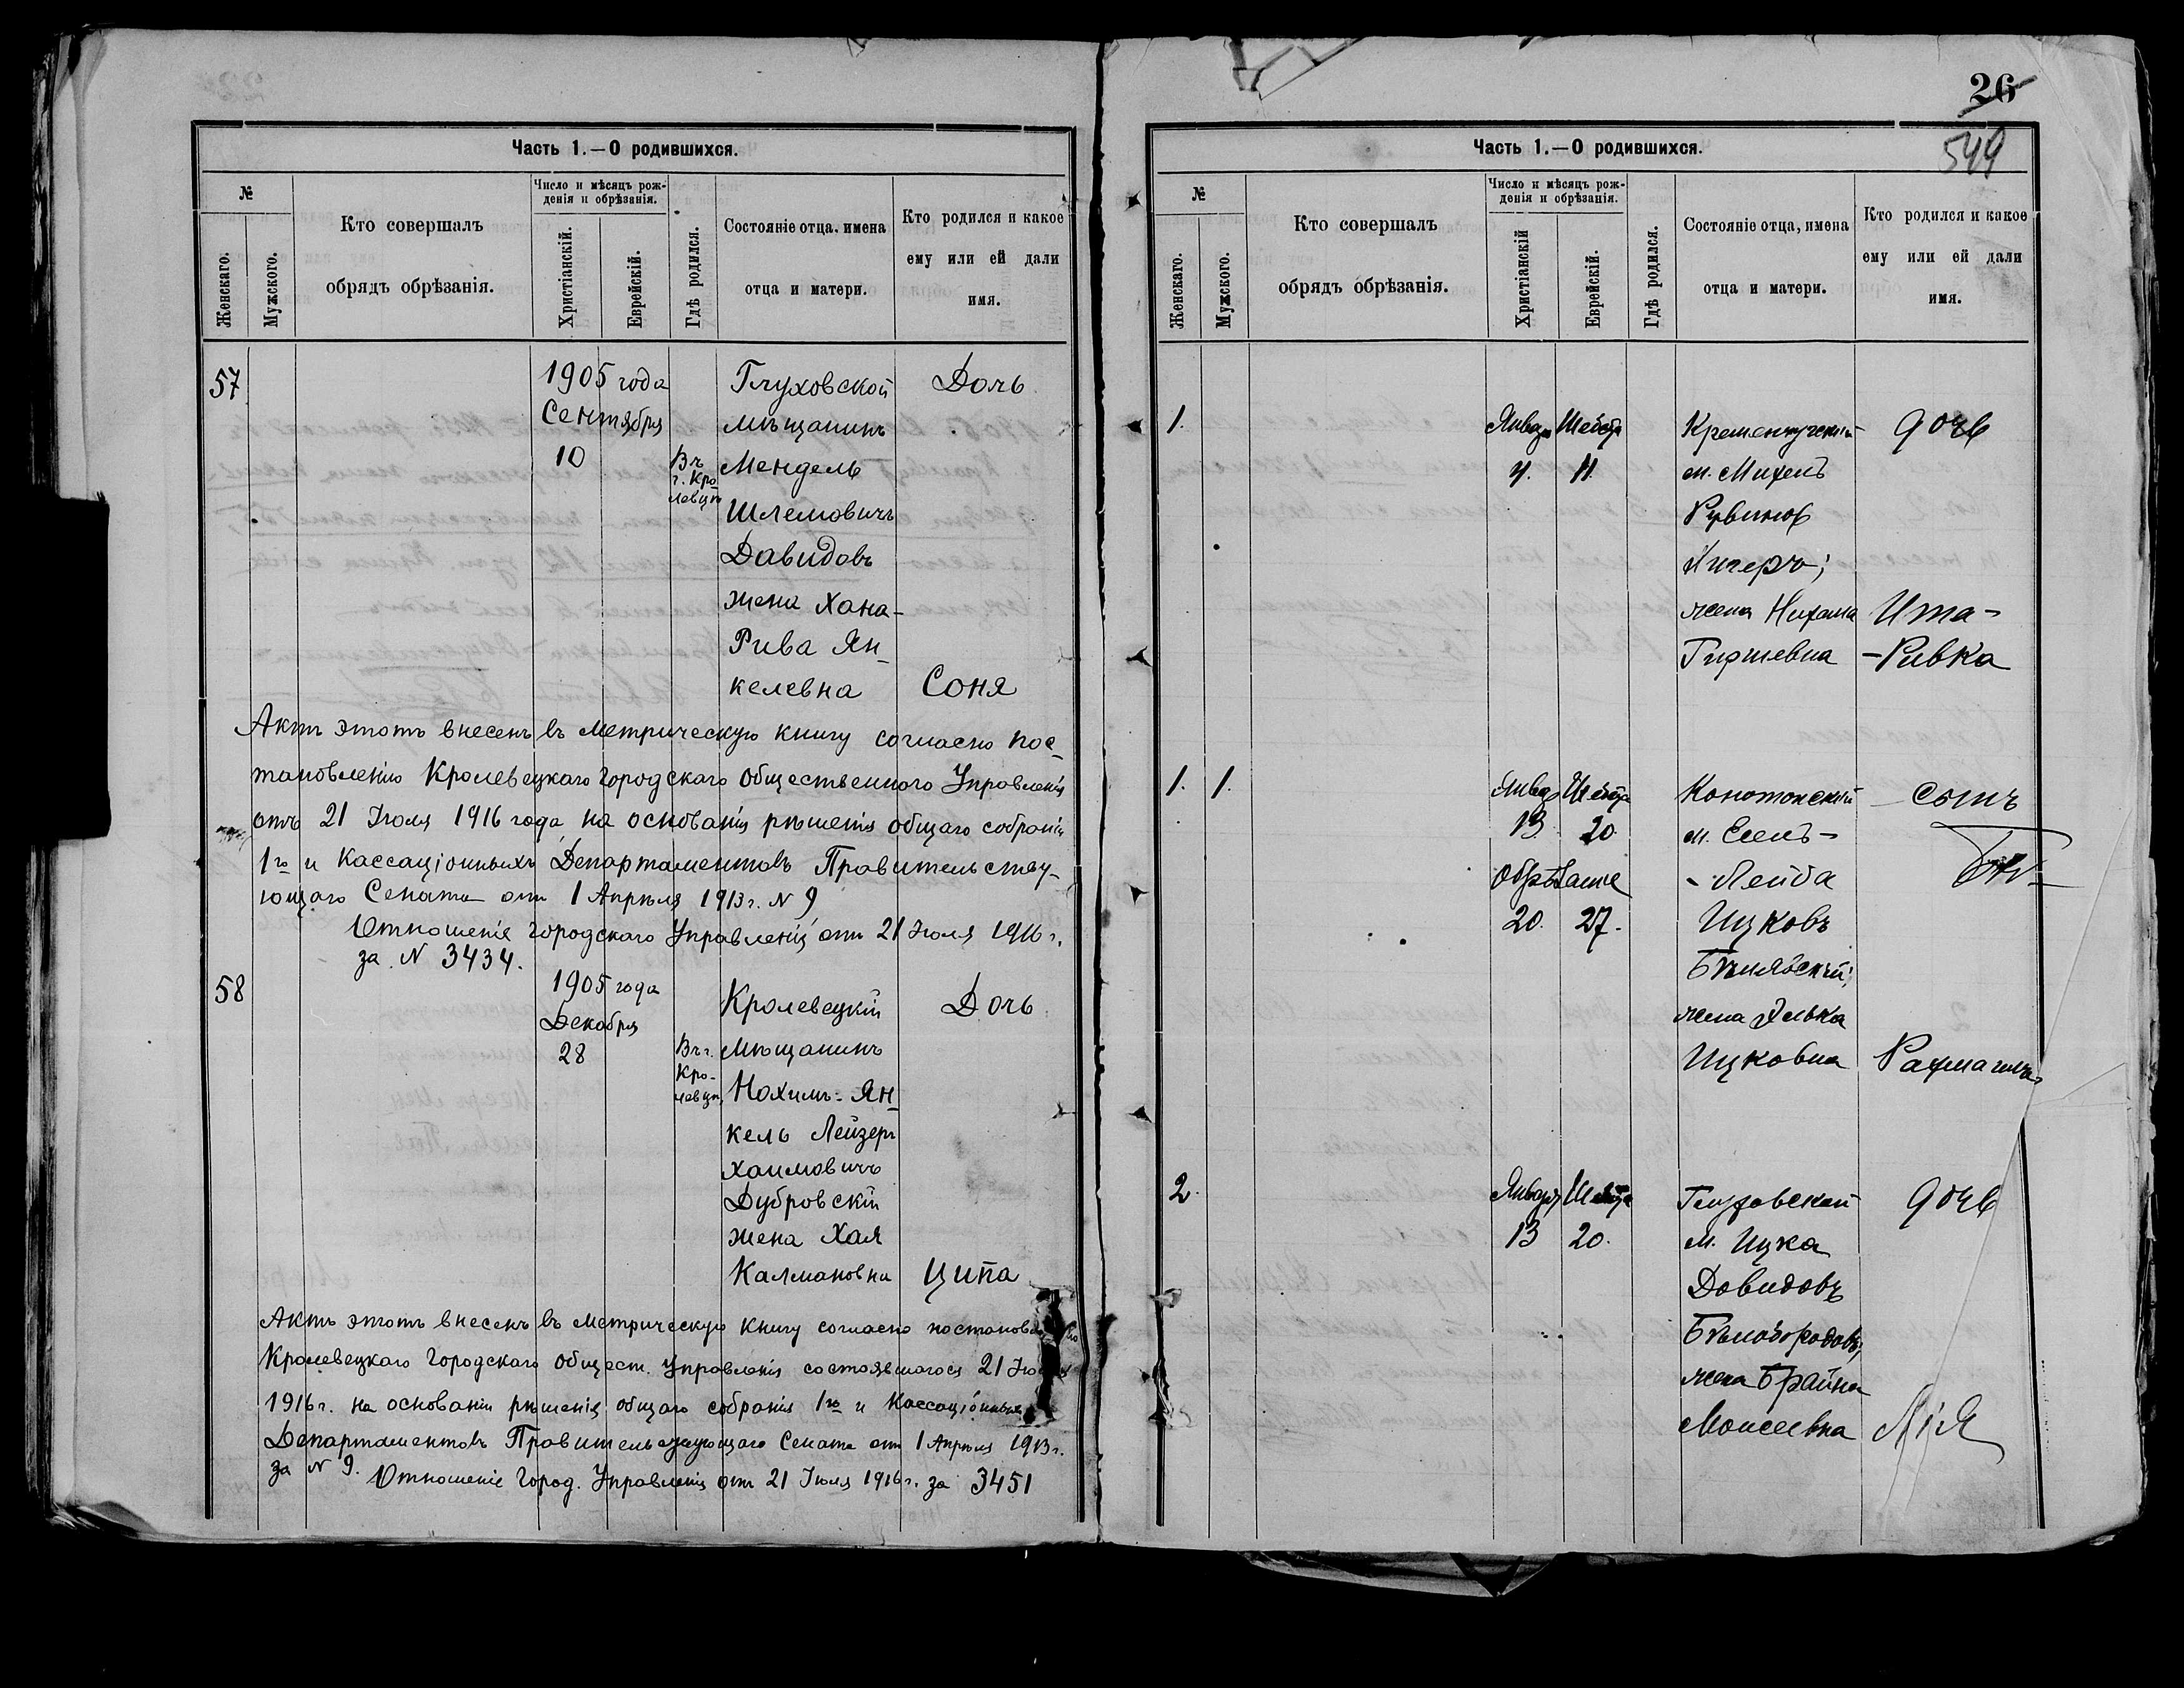 Часть 1.—О родившихся.
№
Женскаго.
Мужского.
Кто совершалъ
обрядъ обрѣзанія.
Число и мѣсяцъ рож-
денія и обрѣзанія.
Христіанскій.
Еврейскій.
Гдѣ родился.
Состояніе отца, имена
отца и матери.
Кто родился и какое
ему или ей дали
имя.
57
1905 года
Сентября
10
Въ
г. Кро
левцѣ
Глуховской
мѣщанинъ
Мендель
Шлемовичъ
Давидовъ
жена Хана-
Рива Ян-
келевна
Дочь
Соня
Актъ этотъ внесенъ въ метрическую книгу согласно пос-
тановленію Кролевецкаго Городскаго Общественного Управленія
отъ 21 Іюля 1916 года на основанія рѣшенія общаго собранія
1го и Кассаціонныхъ Департаментовъ Правительству-
ющаго Сената отъ 1 Апрѣля 1913 г. N 9
Отношеніе Городскаго Управленія отъ 21 Іюля 1916 г.
за N 3434.
58
1905 года
Декабря
28
Въ г.
Кро-
левцѣ
Кролевецкій
Мѣщанинъ
Нохимъ-Ян-
кель Лейзеръ
Хаимовичъ
Дубровскій
жена Хая
Калмановна
Дочь
Ципа
Актъ этотъ внесенъ въ метрическую книгу согласно
Кролевецкаго Городскаго Общест. Управленія состоявшагося 21
1916 г. на основаніи рѣшенія общаго собранія 1го и Кассаціонныхъ
Департаментовъ Правительствующаго Сената отъ 1 Апрѣля 1913 г.
за N 9. Отношеніе Город. Управленія отъ 21 Іюля 1916 г. за 3451
26
549
Часть 1.—О родившихся.
№
Женскаго.
Мужского.
Кто совершалъ
обрядъ обрѣзанія.
Число и мѣсяцъ рож-
денія и обрѣзанія.
Христіанскій
Еврейскій.
Гдѣ родился.
Состояніе отца, имена
отца и матери.
Кто родился и какое
ему или ей дали
имя.
1.
Января
Шевата
4. 11.
Кременчугскій
м. Михель
Рувиновъ
жена Нихама
Гиршевна
дочь
Ита-
-Ривка
1. 1.
Января
Шевата
13. 20.
Обрѣзаніе
20. 27.
Конотопскій
м.
-Лейба
Ицковъ
жена
Ицковна
сынъ
2.
Января
Шевата
13 20.
Глуховской
м. Ицка
Довидовъ
Бѣлобородовъ,
жена Брайна
Моисеевна
дочь
Лія